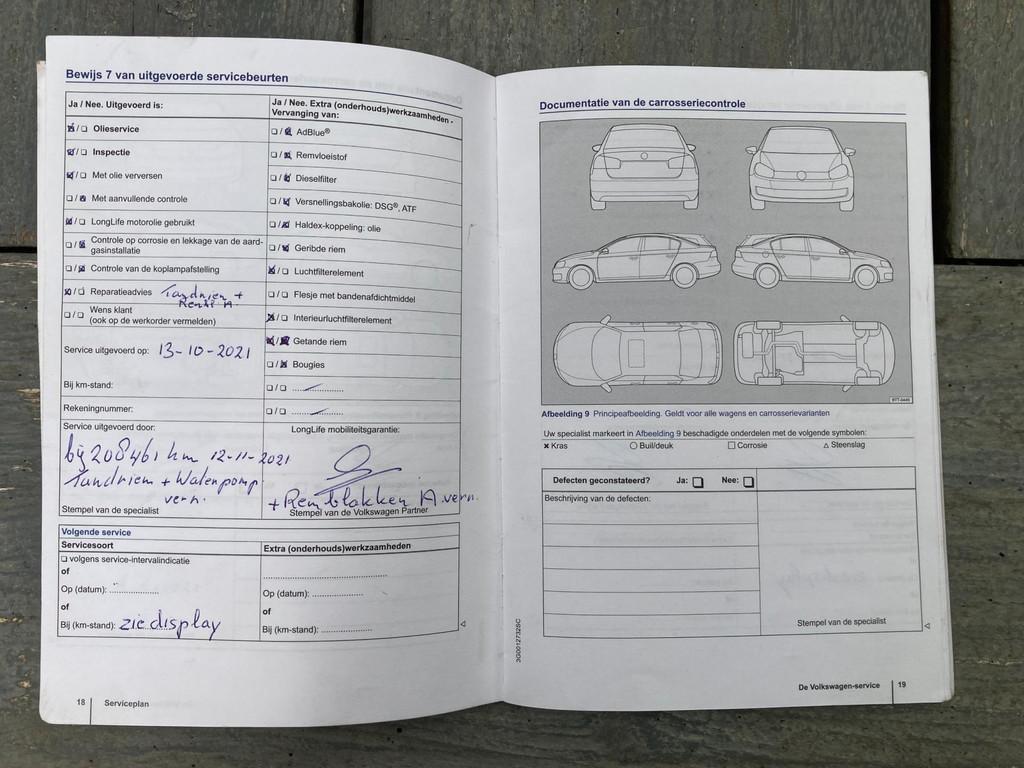 Bewijs 7 van uitgevoerde servicebeurten
Ja / Nee. Uitgevoerd is:
Olieservice
Inspectie
Met olie verversen
Met aanvullende controle
LongLife motorolie gebruikt
Controle op corrosie en lekkage van de aard-
gasinstallatie
Controle van de koplampafstelling
Reparatieadvies Tandriem +
Wens klant
(ook op de werkorder vermelden)
Service uitgevoerd op: 13-10-2021
Bij km-stand:
Rekeningnummer:
Service uitgevoerd door:
bij 208461 km 12-11-2021
Tandriem + Waterpomp
vern.
Stempel van de specialist
Ja / Nee. Extra (onderhouds)werkzaamheden -
Vervanging van:
AdBlue®
Remvloeistof
Dieselfilter
Versnellingsbakolie: DSG®, ATF
Haldex-koppeling: olie
Geribde riem
Luchtfilterelement
Flesje met bandenafdichtmiddel
Interieurluchtfilterelement
Getande riem
Bougies
LongLife mobiliteitsgarantie:
+ Remblokken A vern.
Stempel van de Volkswagen Partner
Volgende service
Servicesoort
volgens service-intervalindicatie
of
Op (datum):
of
Bij (km-stand): zie display
Extra (onderhouds)werkzaamheden
Op (datum):
of
Bij (km-stand):
18 Serviceplan
Documentatie van de carrosseriecontrole
Afbeelding 9 Principeafbeelding. Geldt voor alle wagens en carrosserievarianten
Uw specialist markeert in Afbeelding 9 beschadigde onderdelen met de volgende symbolen:
× Kras ○ Buil/deuk □ Corrosie △ Steenslag
Defecten geconstateerd? Ja: Nee:
Beschrijving van de defecten:
Stempel van de specialist
3G0012732SC
De Volkswagen-service 19